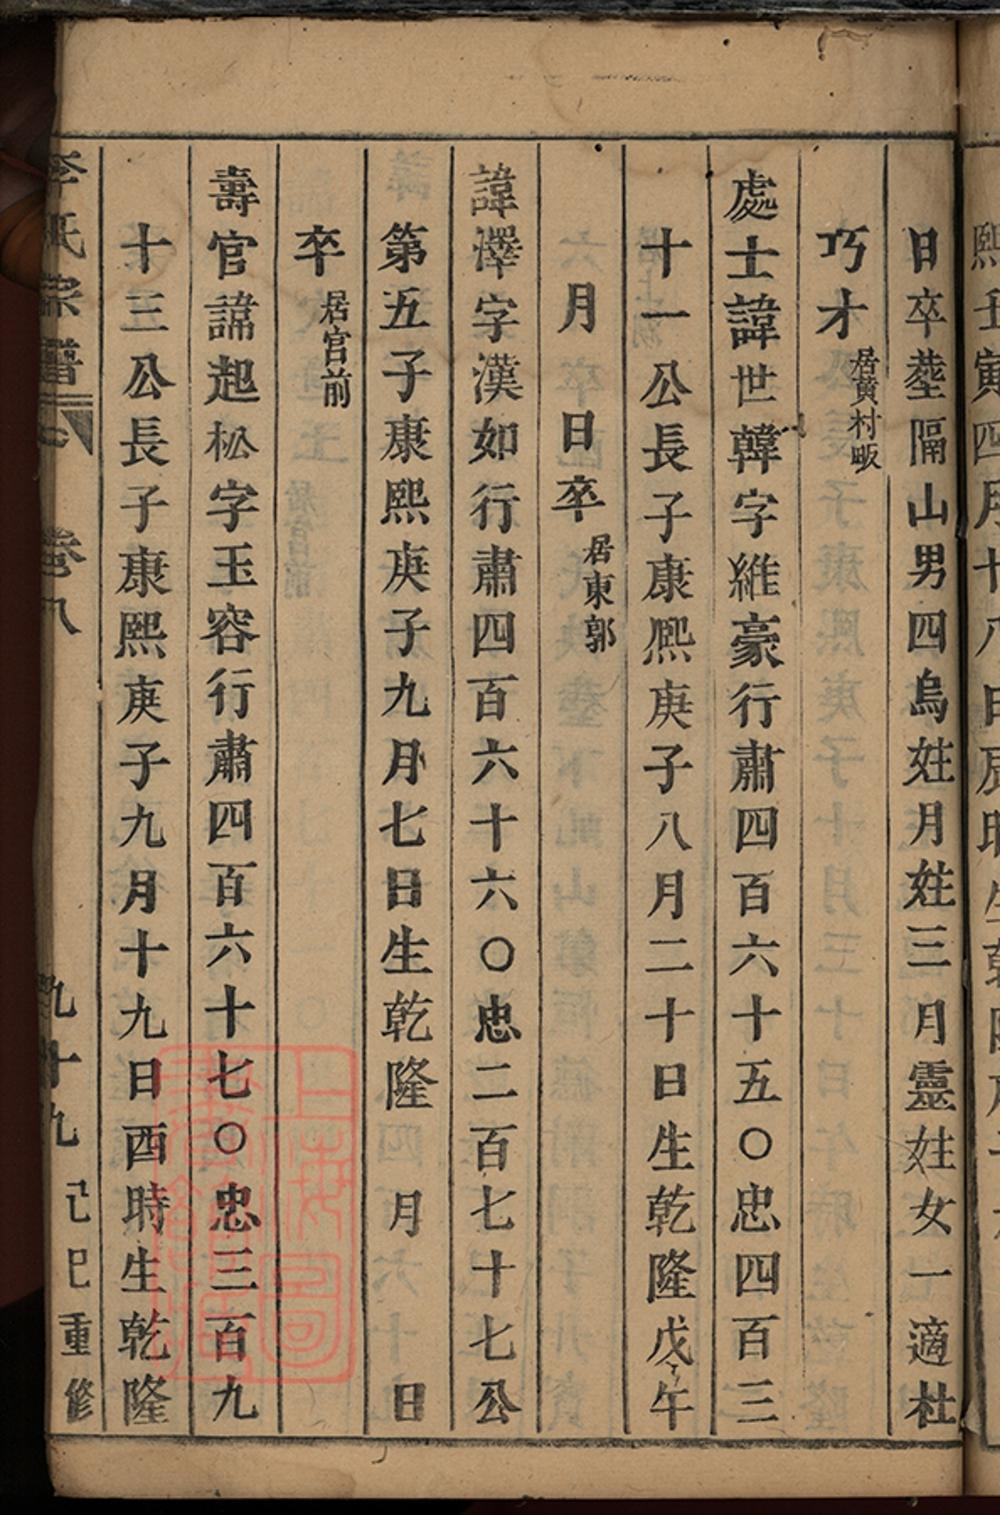 日卒塟隔山男四烏姓月姓三月靈姓女一適杜
巧才居黄村畈
處士諱世韓字維豪行肅四百六十五〇忠四百三
十一公長子康熙庚子八月二十日生乾隆戊午
十月日卒居東郭
諱澤字漢如行肅四百六十六〇忠二百七十七公
第五子康熙庚子九月七日生乾隆月日
卒居官前
壽官諱起松字玉容行肅四百六十七〇忠三百九
十三公長子康熙庚子九月十九日酉時生乾隆
李氏宗譜
卷八
九十九
己巳重修